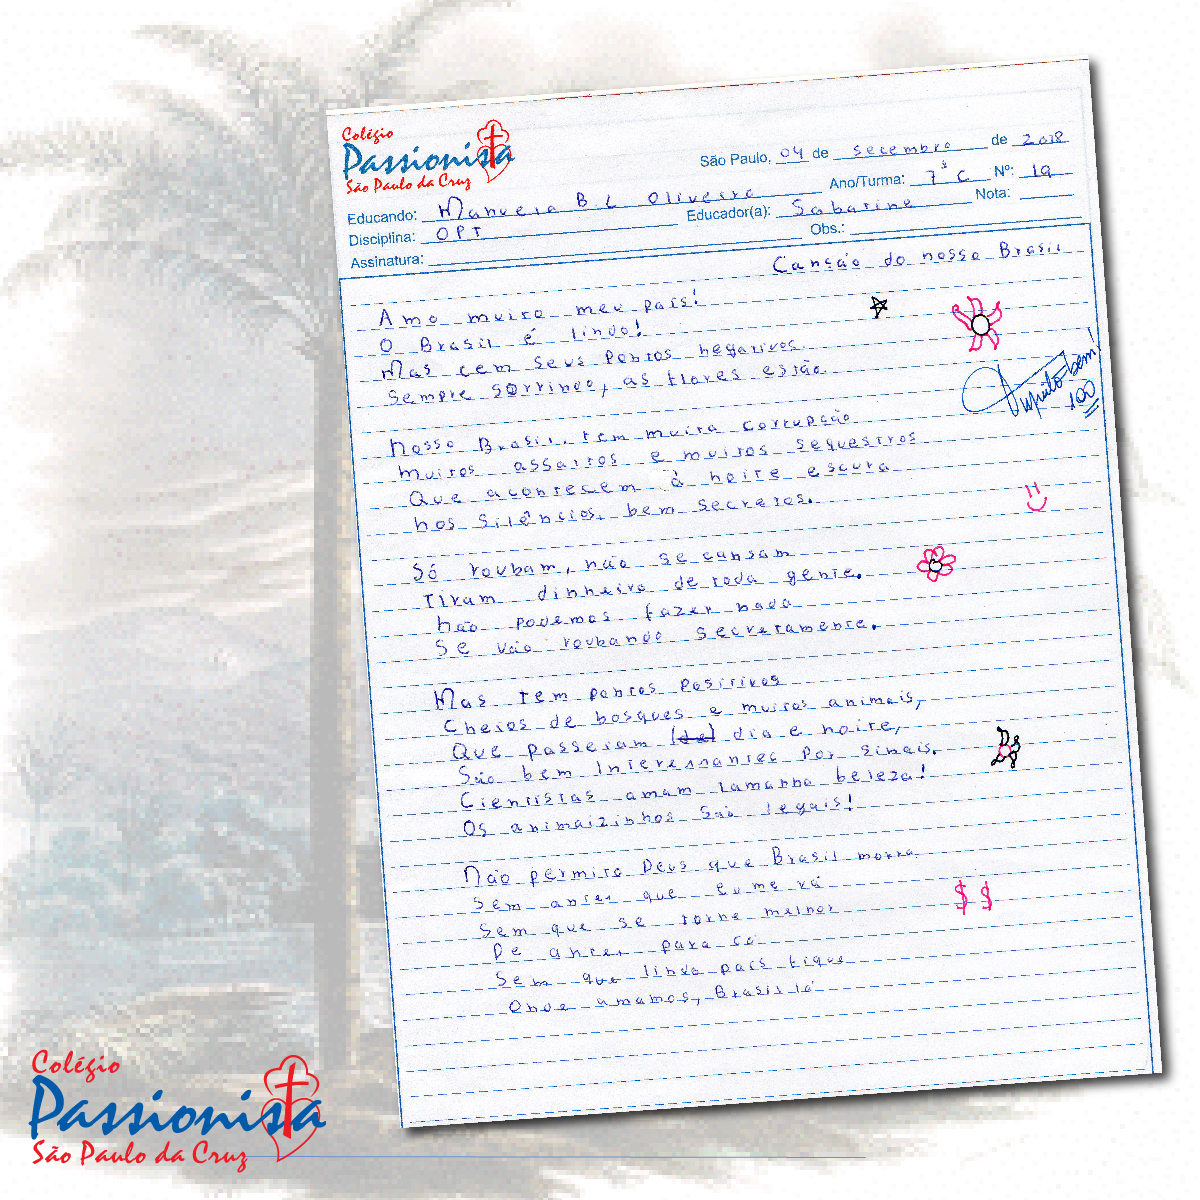 Colégio
Passionista
São Paulo da Cruz
São Paulo, 04 de setembro de 2018
Educando: Manuela B L Oliveira Ano/Turma: 7º C Nº: 19
Disciplina: OPT Educador(a): Sabarine Nota:
Assinatura: Obs.:
Canção do nosso Brasil
Amo muito meu país!
O Brasil é lindo!
Mas tem seus pontos negativos
Sempre sorrindo, as flores estão
Nosso Brasil, tem muita corrupção
muitos assaltos e muitos sequestros
Que acontecem à noite escura
nos silêncios, bem secretos.
Muito bem!
100
Só roubam, não se cansam
Tiram dinheiro de toda gente.
Não podemos fazer nada
Se vão roubando secretamente.
Mas tem pontos positivos
Cheios de bosques e muitos animais,
Que passeiam (de) dia e noite,
São bem interessantes por sinais.
Cientistas amam tamanha beleza!
Os animaizinhos são legais!
Não permita Deus que Brasil morra
Sem antes que eu me vá
Sem que se torne melhor
$ $
De antes para cá
Sem que lindo país fique
Onde amamos, Brasil lá
Colégio
Passionista
São Paulo da Cruz